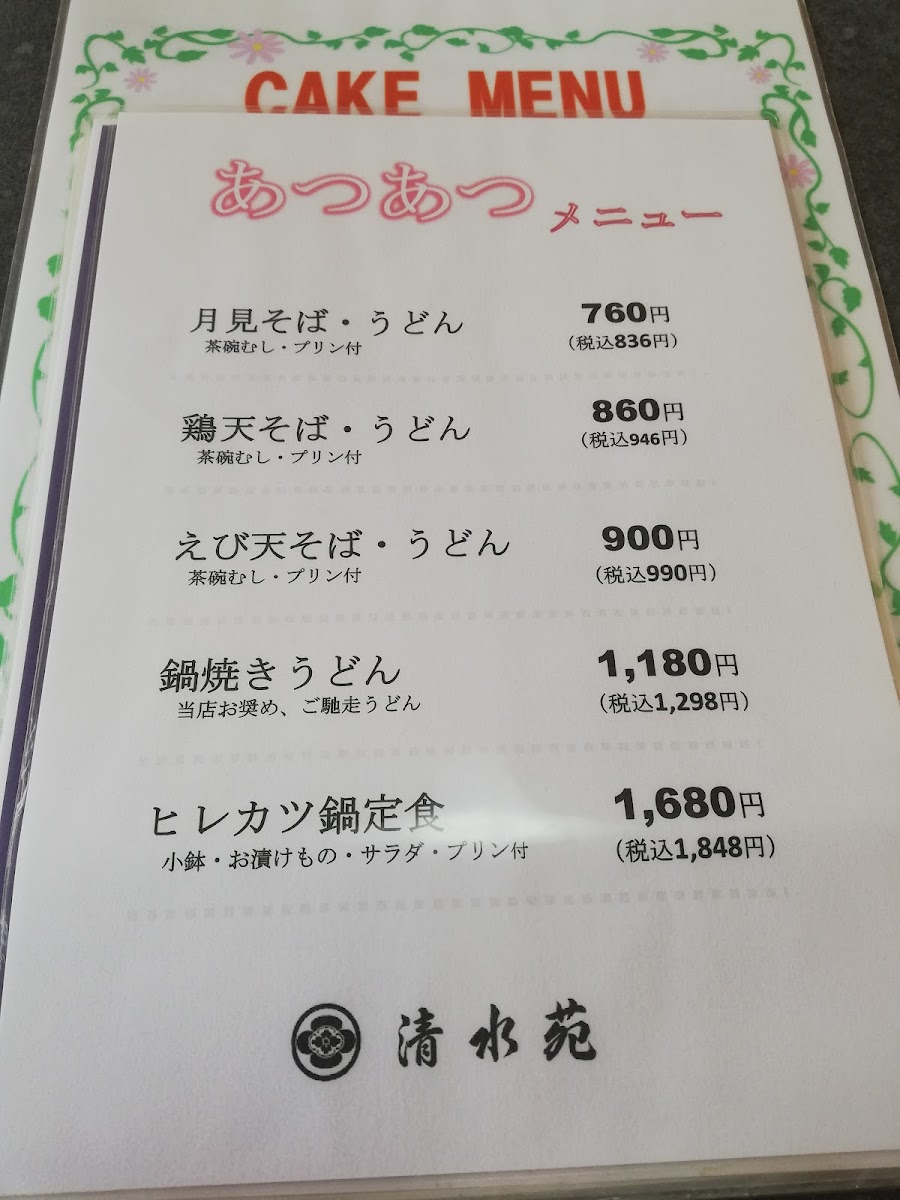 CAKE MENU
あつあつ メニュー
月見そば・うどん 760円
茶碗むし・プリン付 (税込836円)
鶏天そば・うどん 860円
茶碗むし・プリン付 (税込946円)
えび天そば・うどん 900円
茶碗むし・プリン付 (税込990円)
鍋焼きうどん 1,180円
当店お奨め、ご馳走うどん (税込1,298円)
ヒレカツ鍋定食 1,680円
小鉢・お漬けもの・サラダ・プリン付 (税込1,848円)
清水苑